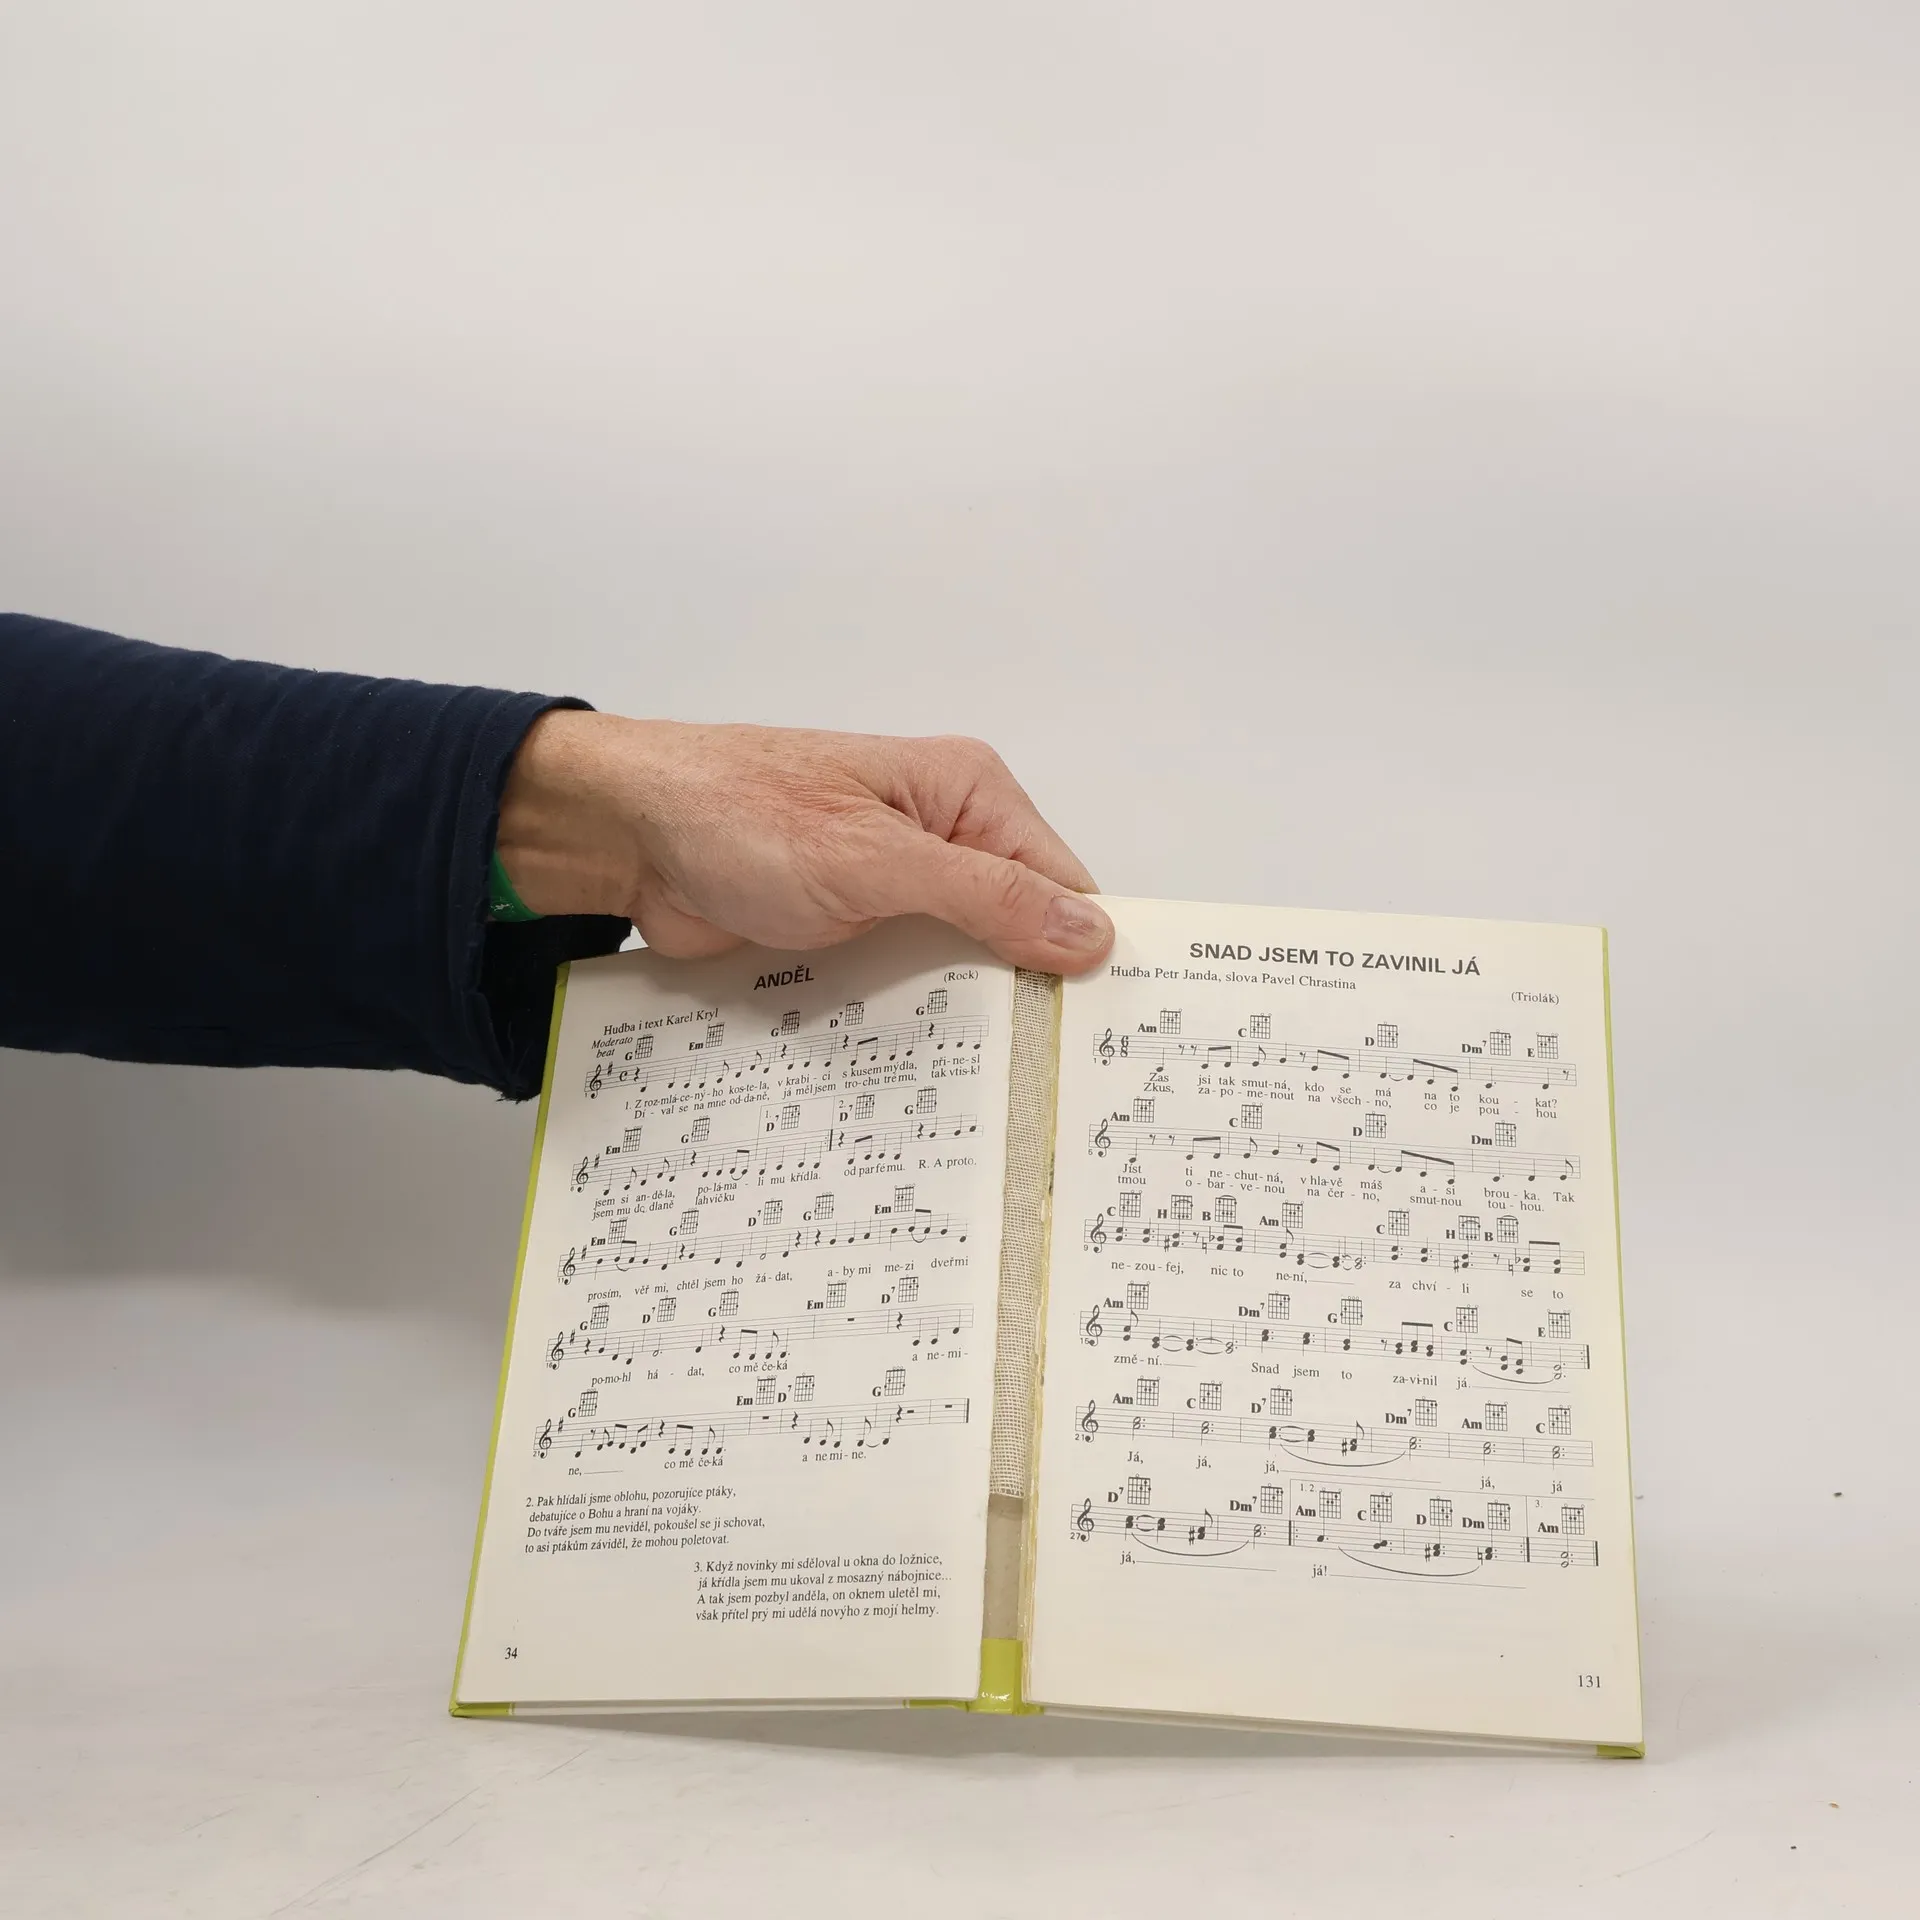 ANDĚL
(Rock)
Hudba i text Karel Kryl
Moderato
beat
G Em G D7 G
1. Z roz-mlá-ce-ný-ho kos-te-la, v krabi-ci s kusem mýdla, při-ne-sl
Dí-val se na mne od-da-ně, já měl jsem tro-chu trému, tak vtiskl
Em G 1. D7 2. D7 G
jsem si an-dě-la, po-lá-ma-li mu křídla. od parfému. R. A proto,
jsem mu do dlaně lahvičku
Em G D7 G Em
prosím, věř mi, chtěl jsem ho žá-dat, a-by mi me-zi dveřmi
G D7 G Em D7
po-mo-hl há-dat, co mě če-ká a ne-mi-
G Em D7 G
ne, co mě če-ká a ne mi-ne.
2. Pak hlídali jsme oblohu, pozorujíce ptáky,
debatujíce o Bohu a hraní na vojáky.
Do tváře jsem mu neviděl, pokoušel se ji schovat,
to asi ptákům záviděl, že mohou poletovat.
3. Když novinky mi sděloval u okna do ložnice,
já křídla jsem mu ukoval z mosazný nábojnice...
A tak jsem pozbyl anděla, on oknem uletěl mi,
však přítel prý mi udělá novýho z mojí helmy.
34
SNAD JSEM TO ZAVINIL JÁ
Hudba Petr Janda, slova Pavel Chrastina
(Triolák)
Am C D Dm7 E
1
Zas jsi tak smut-ná, kdo se má na to kou-kat?
Zkus, za-po-me-nout na všech-no, co je pou-hou
Am C D Dm
6
Jíst ti ne-chut-ná, v hla-vě máš a-si brou-ka. Tak
tmou o-bar-ve-nou na čer-no, smut-nou tou-hou.
C H B Am C H B
9
ne-zou-fej, nic to ne-ní, za chví-li se to
Am Dm7 G C E
15
změ-ní. Snad jsem to za-vi-nil já.
Am C D7 Dm7 Am C
21
Já, já, já, já, já
D7 Dm7 1. 2. Am C D Dm 3. Am
27
já, já!
131